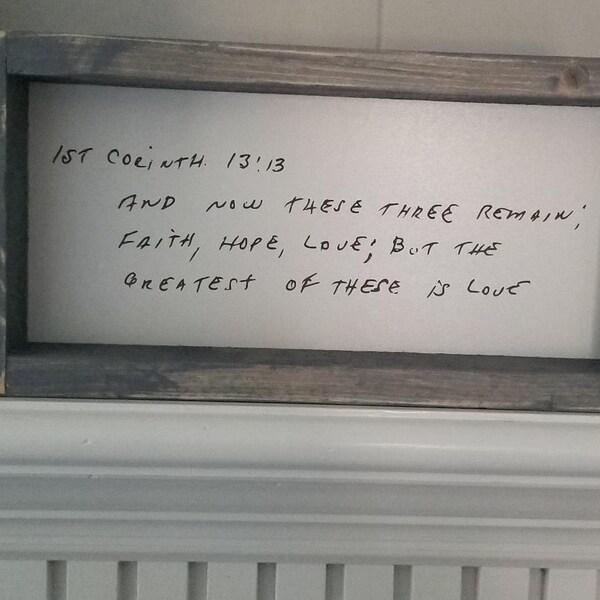 1ST CORINTH. 13:13
AND NOW THESE THREE REMAIN;
FAITH, HOPE, LOVE; BUT THE
GREATEST OF THESE IS LOVE